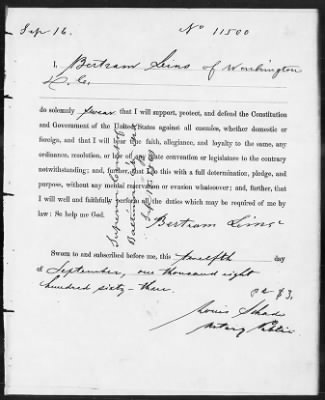 Sep 16.
No 11500
I, Bertram Lins of Washington
D. C.
do solemnly swear that I will support, protect, and defend the Constitution
and Government of the United States against all enemies, whether domestic or
foreign, and that I will bear true faith, allegiance, and loyalty to the same, any
ordinance, resolution, or law of any State convention or legislature to the contrary
notwithstanding; and, further, that I do this with a full determination, pledge, and
purpose, without any mental reservation or evasion whatsoever; and, further, that
I will well and faithfully perform all the duties which may be required of me by
law: So help me God.
Bertram Lins
Sworn to and subscribed before me, this twelfth day
of September, one thousand eight
hundred sixty-three.
Louis Schade
Notary Public